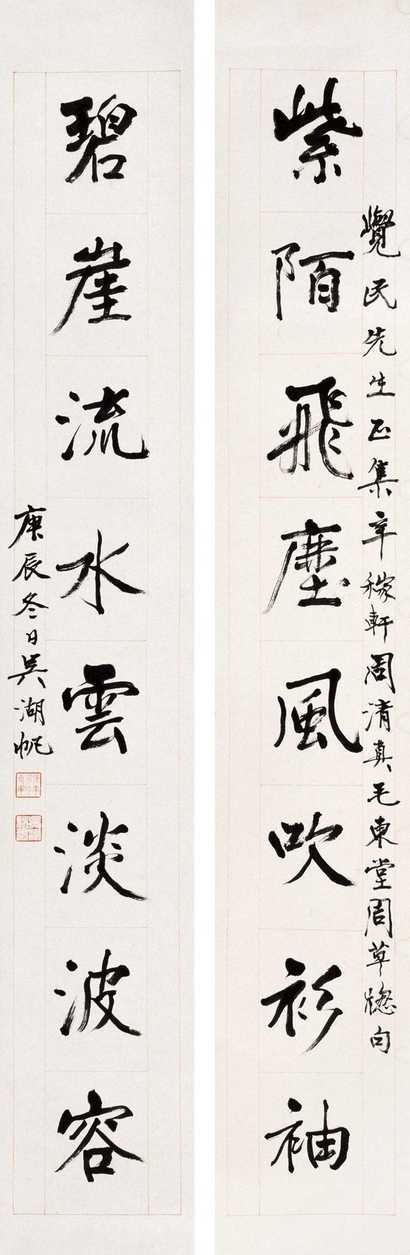 覺民先生正集辛稼軒周清真毛東堂周草牕句
紫陌飛塵風吹衫袖
碧崖流水雲淡波容
庚辰冬日吳湖帆